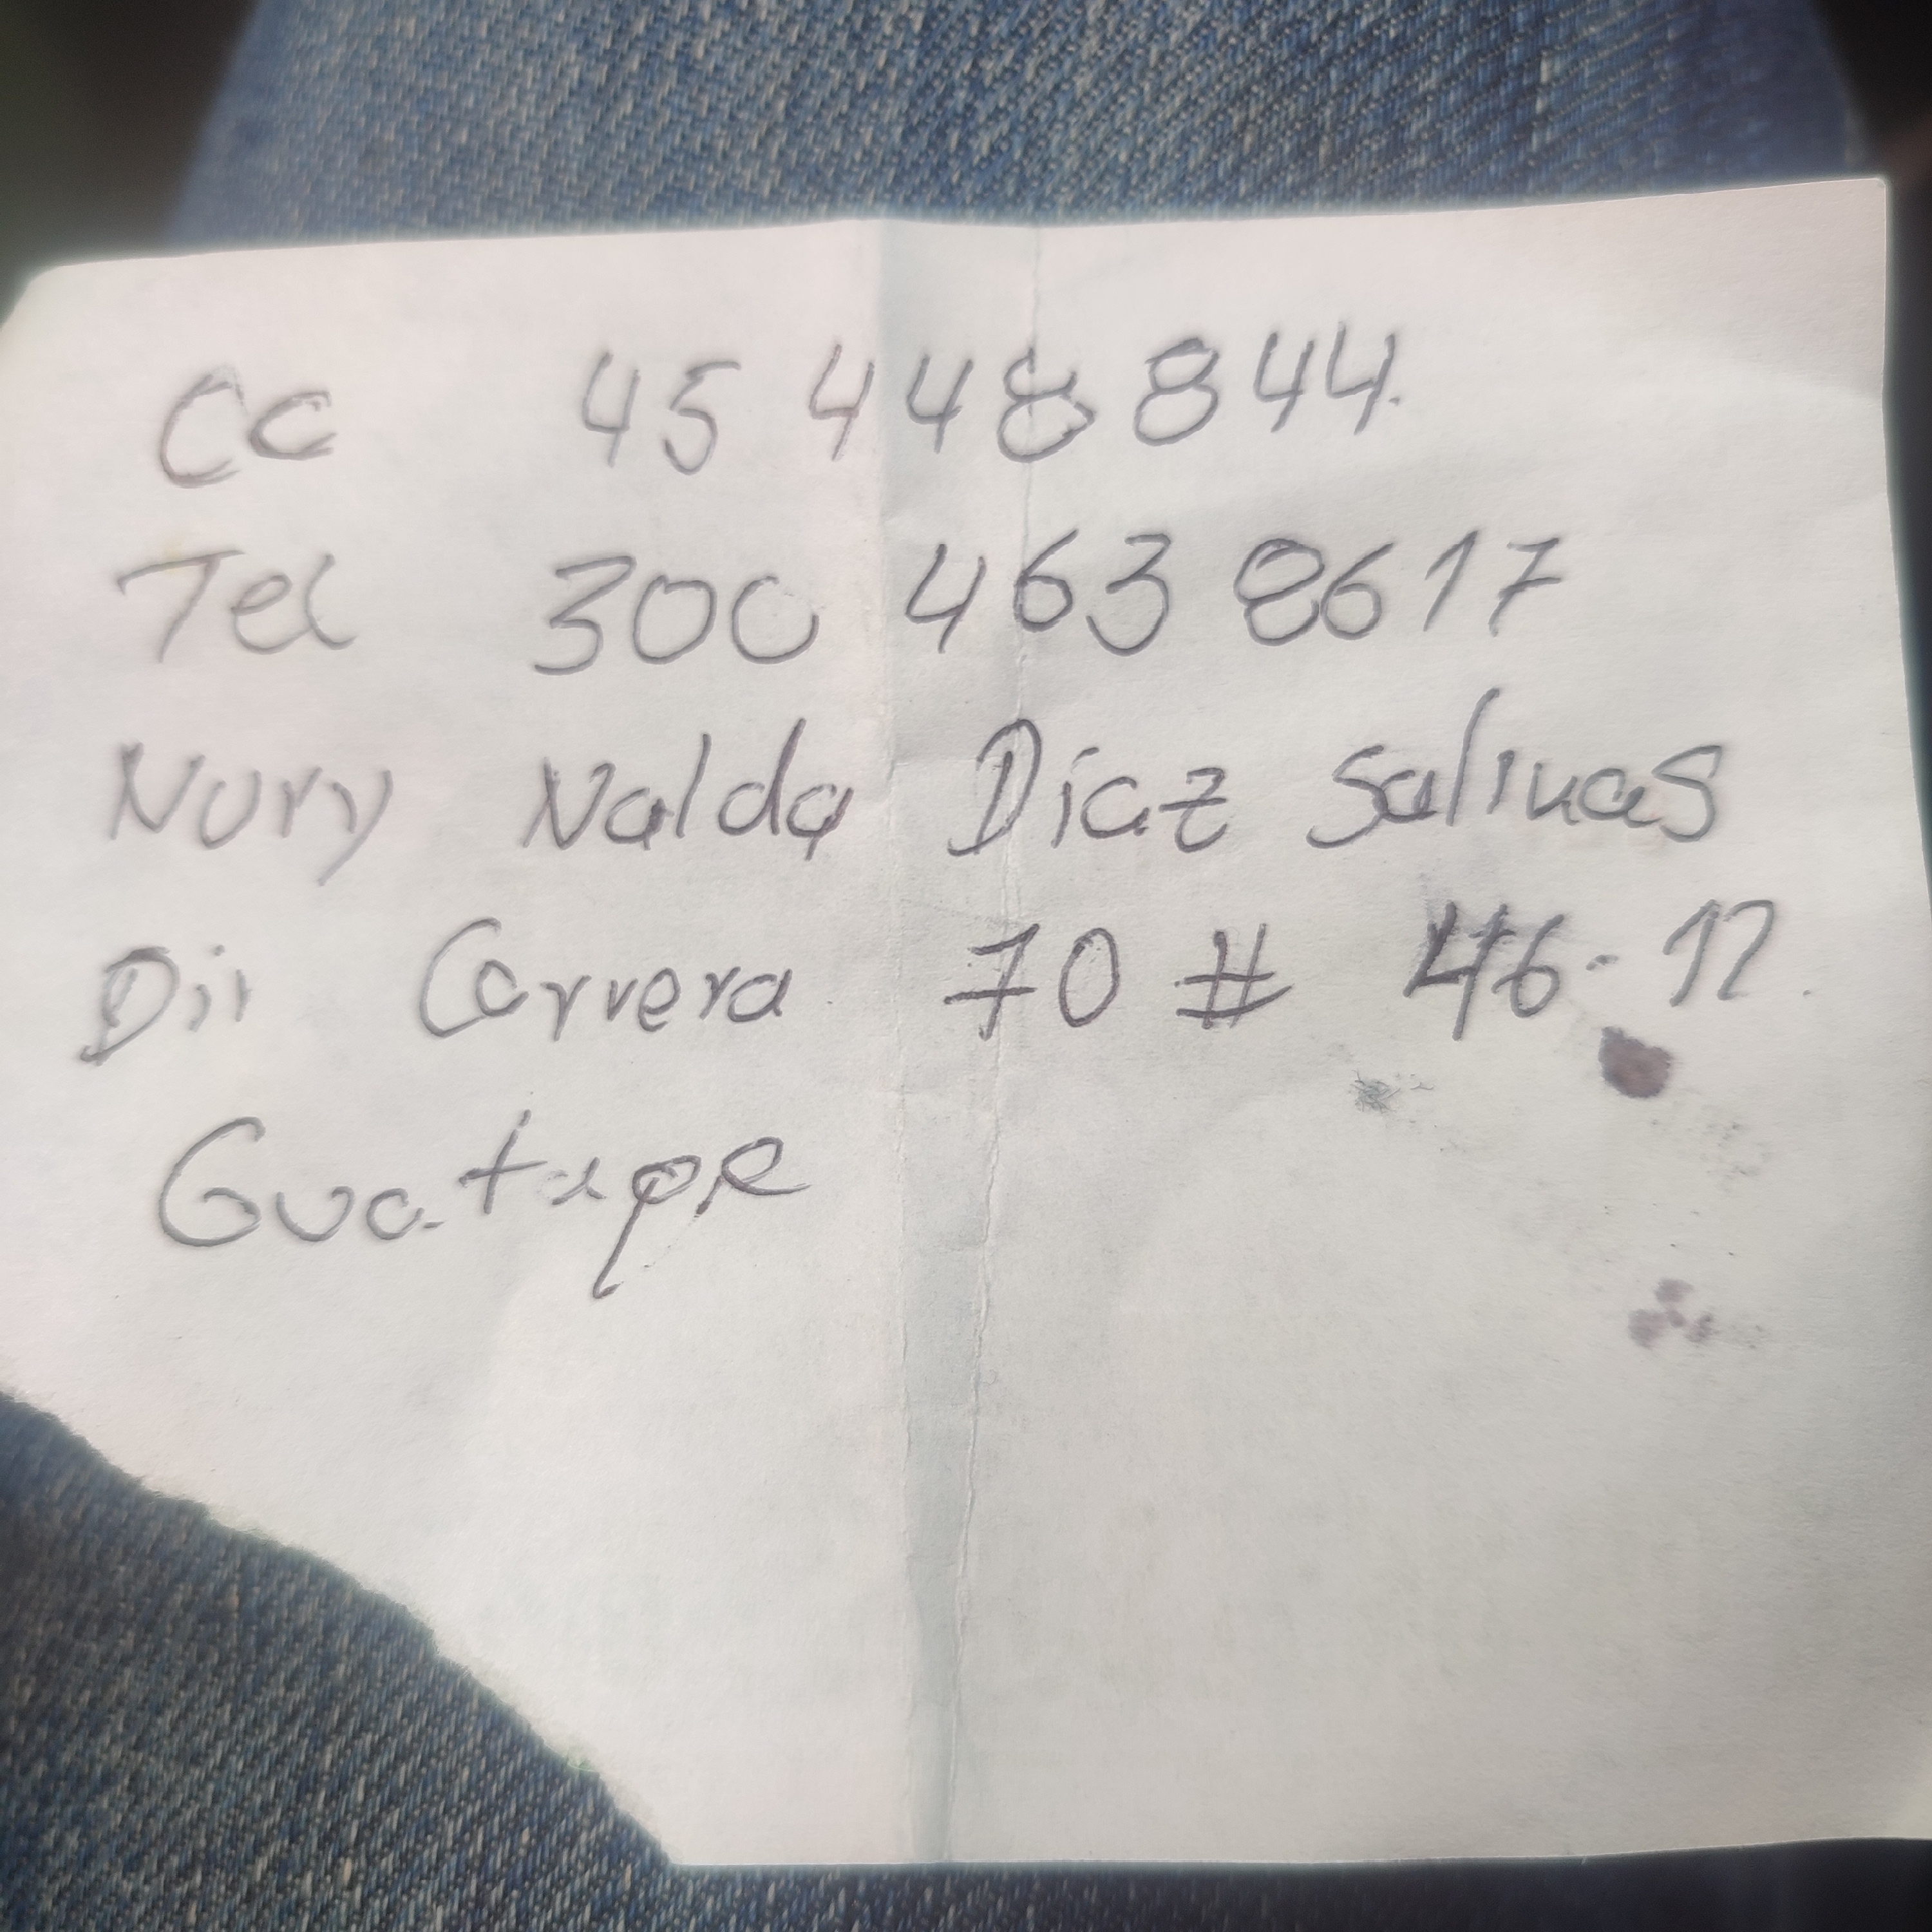 Cc 45 448 844.
Tel 300 463 8617
Nury Nalda Diaz Salinas
Dir Carrera 70 # 46-12.
Guatape